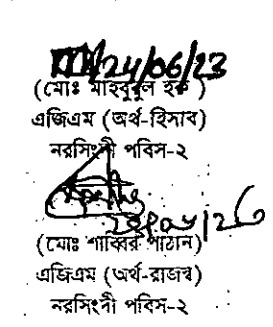 24/06/23
(মোঃ মাহবুবুল হক)
এজিএম (অর্থ-হিসাব)
নরসিংদী পবিস-২
(মোঃ শাব্বির পাঠান)
এজিএম (অর্থ-রাজস্ব)
নরসিংদী পবিস-২